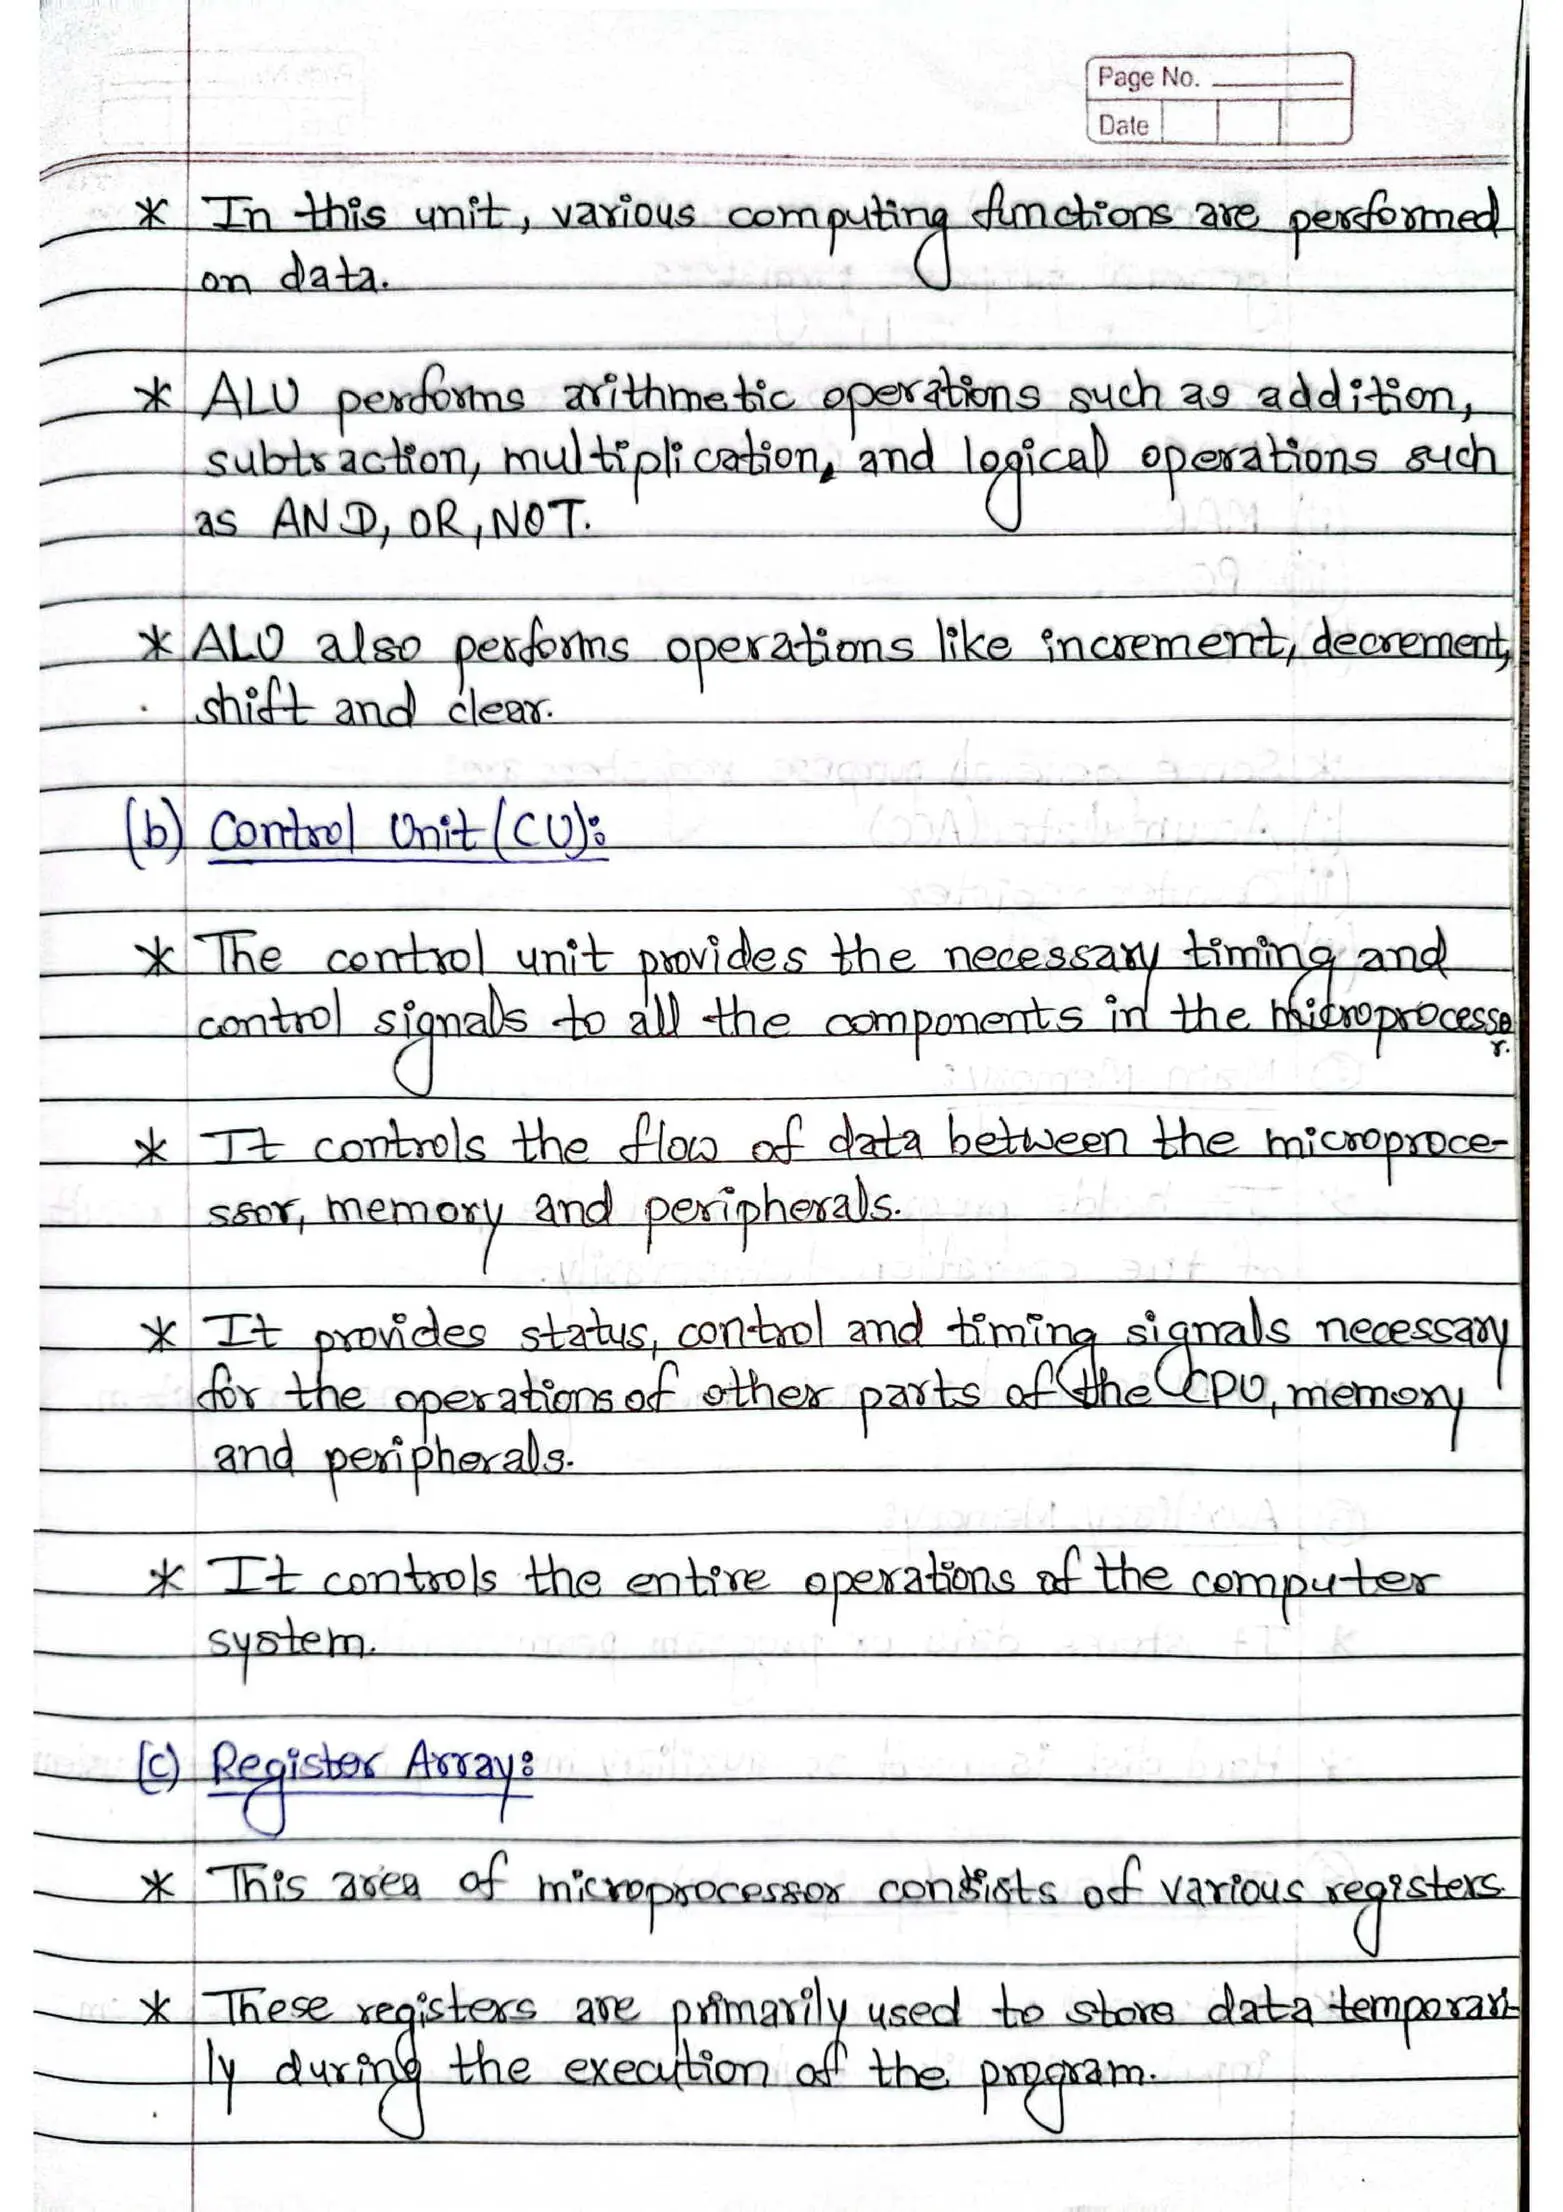 Page No.
Date
* In this unit, various computing functions are performed
on data.
* ALU performs arithmetic operations such as addition,
subtraction, multiplication, and logical operations such
as AND, OR, NOT.
* ALU also performs operations like increment, decrement,
shift and clear.
(b) Control Unit (CU):
* The control unit provides the necessary timing and
control signals to all the components in the microprocesso
r.
* It controls the flow of data between the microproce-
ssor, memory and peripherals.
* It provides status, control and timing signals necessary
for the operations of other parts of the CPU, memory
and peripherals.
* It controls the entire operations of the computer
system.
(c) Register Array:
* This area of microprocessor consists of various registers.
* These registers are primarily used to store data temporari-
ly during the execution of the program.